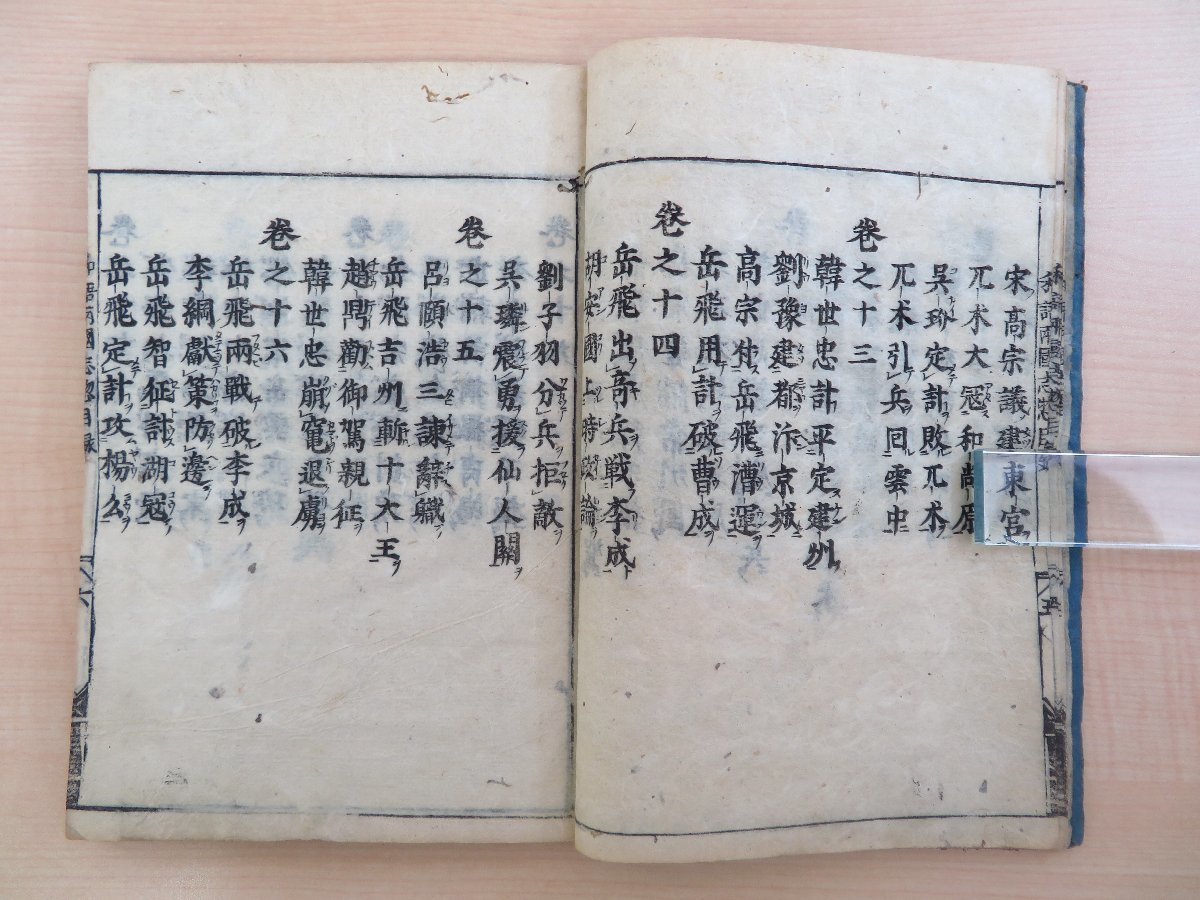 宋高宗議建東宮
兀朮大寇和尚原
吳玠定計敗兀朮
兀朮引兵囘雲中
卷之十三
韓世忠計平定建州
劉豫建都汴京城
高宗使岳飛漕運
岳飛用計破曹成
卷之十四
岳飛出奇兵戦李成
胡安國上時政論
劉子羽分兵拒敵
吳璘震勇援仙人關
卷之十五
呂頤浩三諫辭職
岳飛吉州斬十大王
趙鼎勸御駕親征
韓世忠崩竄退虜
卷之十六
岳飛兩戰破李成
李綱獻策防邊
岳飛智征計湖寇
岳飛定計攻楊么